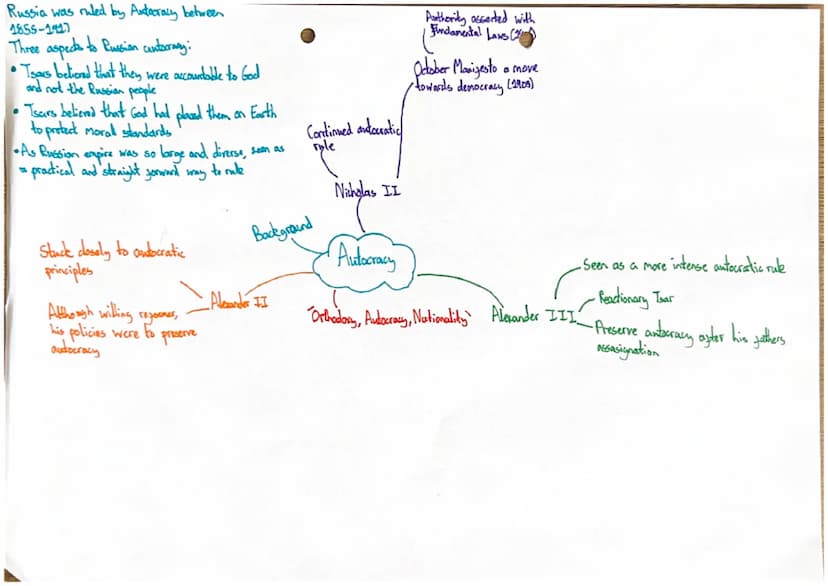 Russia was ruled by Autocracy between
1855-1917
Three aspects to Russian autocracy:
• Tsars believed that they were accountable to God
and not the Russian people
• Tsars believed that God had placed them on Earth
to protect moral standards
• As Russian empire was so large and diverse, seen as
a practical and straight forward way to rule
Authority asserted with
Fundamental Laws
October Manifesto a move
towards democracy (1905)
Continued autocratic
rule
Nicholas II
Background
Autocracy
Stuck closely to autocratic
principles
Alexander II
Although willing reformer,
his policies were to preserve
autocracy
"Orthodoxy, Autocracy, Nationality"
Alexander III
Seen as a more intense autocratic rule
Reactionary Tsar
Preserve autocracy after his fathers
assasignation